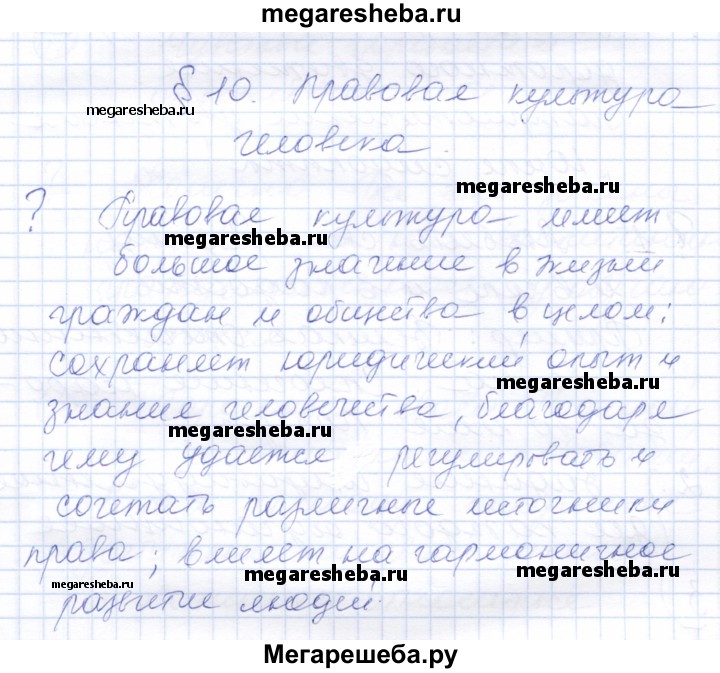 megaresheba.ru
§ 10. Правовая культура
megaresheba.ru
человека.
megaresheba.ru
? Правовая культура имеет
megaresheba.ru
большое значение в жизни
граждан и общества в целом:
сохраняет юридический опыт и
megaresheba.ru
знание человечества, благодаря
megaresheba.ru
чему удается регулировать и
сочетать различные источники
права; влияет на гармоничное
megaresheba.ru
megaresheba.ru
megaresheba.ru
развитие людей.
Мегарешеба.ру